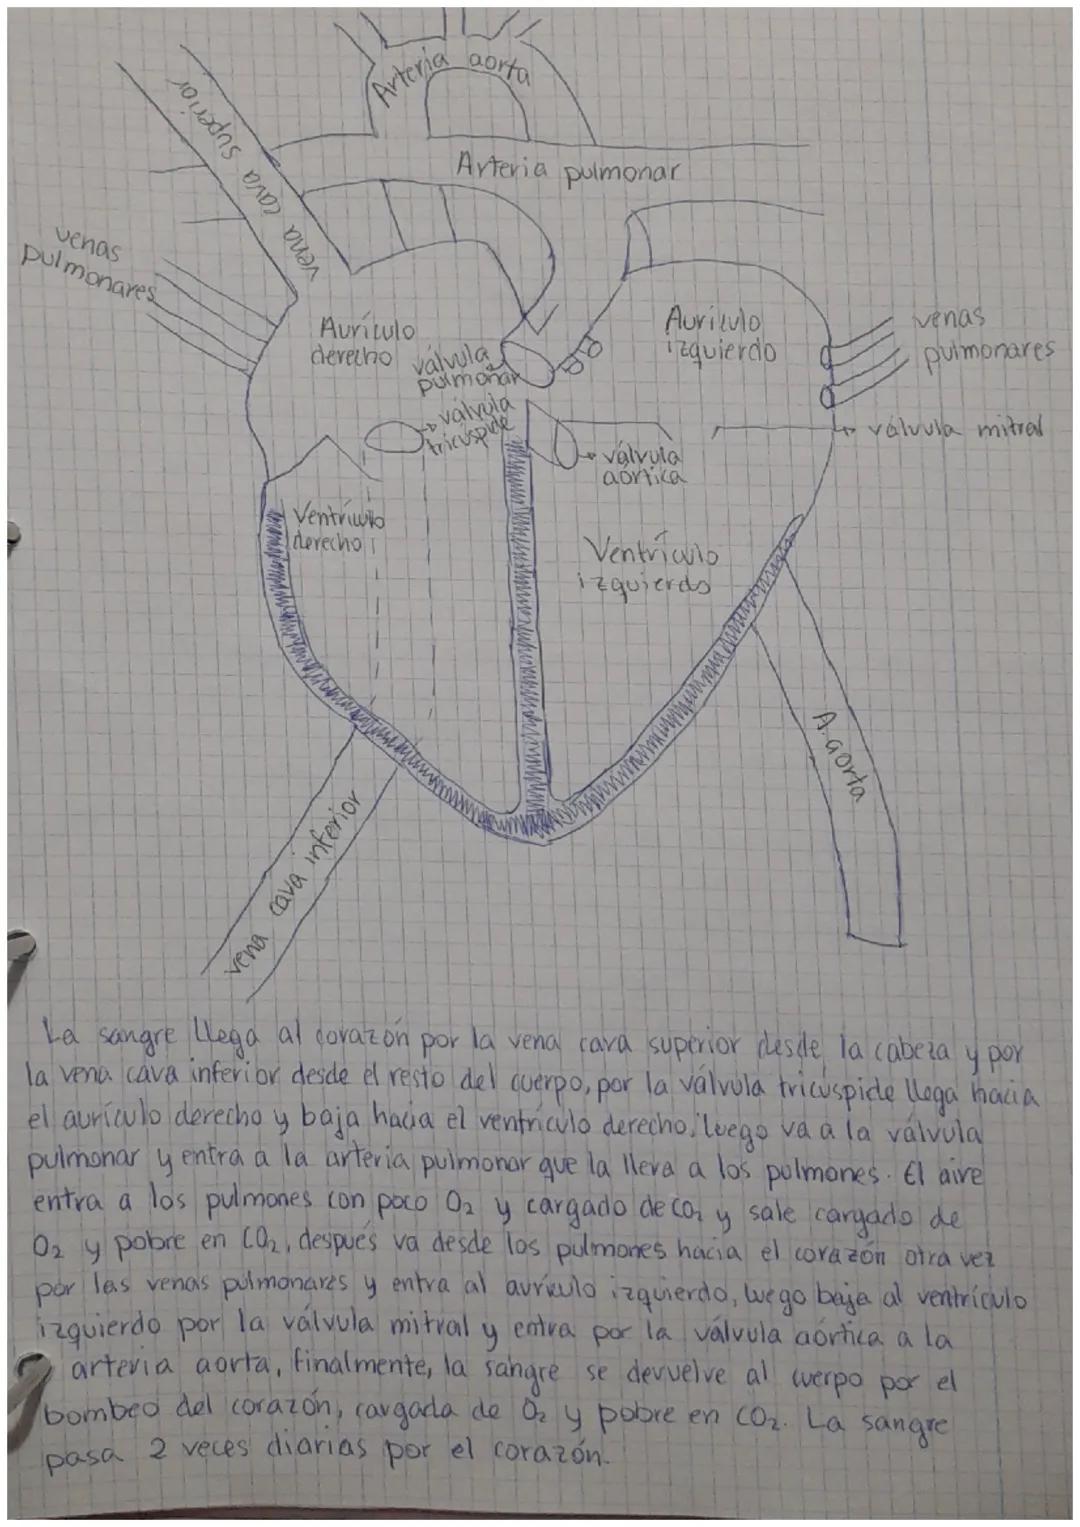 Arteria aorta
vena cava superior
Arteria pulmonar
venas
pulmonares
Aurículo
derecho
válvula
pulmonar
válvula
tricúspide
Aurículo
izquierdo
venas
pulmonares
válvula mitral
válvula
aórtica
Ventrículo
derecho
Ventrículo
izquierdo
A. aorta
vena cava inferior
La sangre llega al corazón por la vena cava superior desde la cabeza y por
la vena cava inferior desde el resto del cuerpo, por la válvula tricúspide llega hacia
el aurículo derecho y baja hacia el ventrículo derecho, luego va a la válvula
pulmonar y entra a la arteria pulmonar que la lleva a los pulmones. El aire
entra a los pulmones con poco O₂ y cargado de CO₂ y sale cargado de
O₂ y pobre en CO₂, después va desde los pulmones hacia el corazón otra vez
por las venas pulmonares y entra al aurículo izquierdo, luego baja al ventrículo
izquierdo por la válvula mitral y entra por la válvula aórtica a la
arteria aorta, finalmente, la sangre se devuelve al cuerpo por el
bombeo del corazón, cargada de O₂ y pobre en CO₂. La sangre
pasa 2 veces diarias por el corazón.